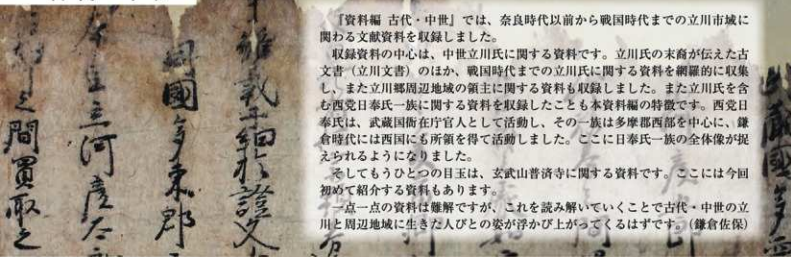 『資料編 古代・中世』では、奈良時代以前から戦国時代までの立川市域に
関わる文献資料を収録しました。
収録資料の中心は、中世立川氏に関する資料です。立川氏の末裔が伝えた古
文書（立川文書）のほか、戦国時代までの立川氏に関する資料を網羅的に収集
し、また立川郷周辺地域の領主に関する資料も収録しました。また立川氏を含
む西党日奉氏一族に関する資料を収録したことも本資料編の特徴です。西党日
奉氏は、武蔵国衙在庁官人として活動し、その一族は多摩郡西部を中心に、鎌
倉時代には西国にも所領を得て活動しました。ここに日奉氏一族の全体像が捉
えられるようになりました。
そしてもうひとつの目玉は、玄武山普済寺に関する資料です。ここには今回
初めて紹介する資料もあります。
一点一点の資料は難解ですが、これを読み解いていくことで古代・中世の立
川と周辺地域に生きた人びとの姿が浮かび上がってくるはずです。（鎌倉佐保）
雖載子細於證文
同國多東郡
立河彦太
之間買取之